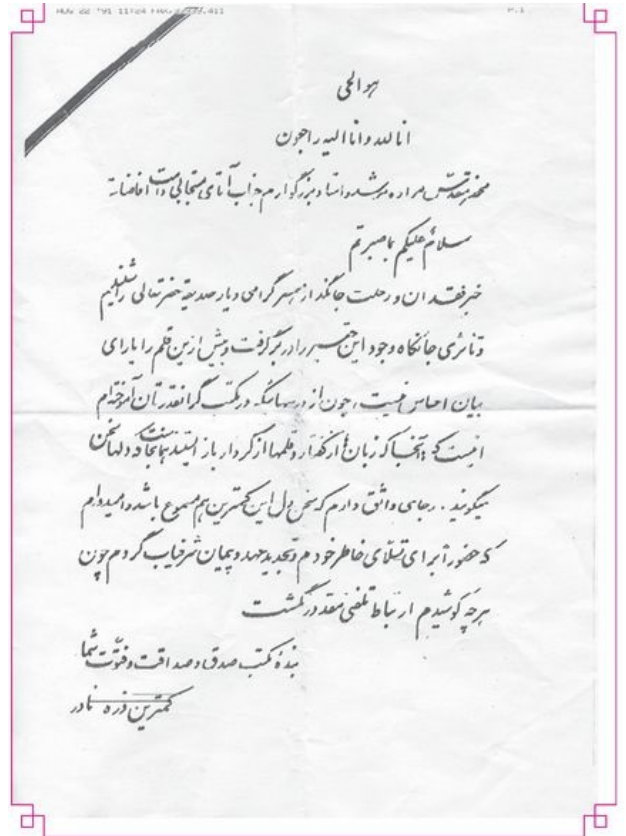 P.1
هو الحی
انا لله و انا الیه راجعون
محضر مقدس مراد و مرشد و استاد بزرگوارم جناب آقای دامت افاضاته
سلام علیکم بما صبرتم
خبر فقدان و رحلت جانگداز همسر گرامی و یار صدیقه حضرتعالی را شنیدم
و تاثری جانکاه وجود این حقیر را در بر گرفت و بیش از این قلم را یارای
بیان احساس نیست، چون از درسهائیکه در مکتب گرانقدرتان آموخته‌ام
اینست که آنجا که زبان‌ها از گفتار و قلمها از کردار باز ایستند همانجاست که دلها سخن
میگویند. رجای واثق دارم که سخن دل این کمترین هم مسموع باشد و امیدوارم
که حضوراً برای تسلای خاطر خودم و تجدید عهد و پیمان شرفیاب گردم چون
هرچه کوشیدم ارتباط تلفنی مقدور نگشت
بنده مکتب صدق و صداقت و فتوّت شما
کمترین ذره نادر